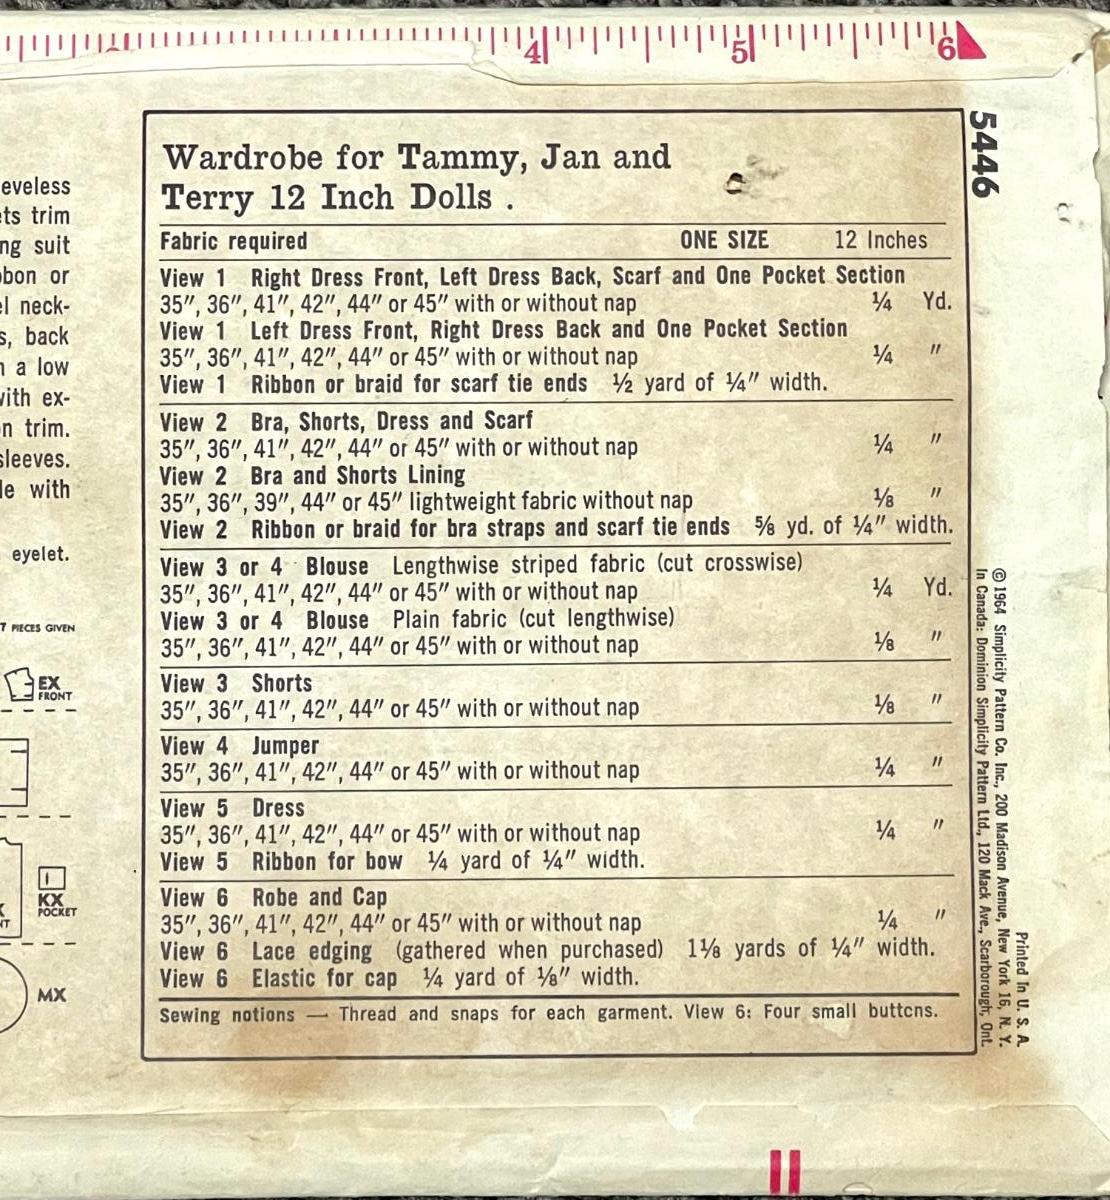 4 5 6
eveless
ets trim
ng suit
bon or
el neck-
s, back
n a low
with ex-
n trim.
sleeves.
le with
eyelet.
7 PIECES GIVEN
EX
FRONT
KX
POCKET
NT
MX
Wardrobe for Tammy, Jan and
Terry 12 Inch Dolls .
Fabric required ONE SIZE 12 Inches
View 1 Right Dress Front, Left Dress Back, Scarf and One Pocket Section
35″, 36″, 41″, 42″, 44″ or 45″ with or without nap ¼ Yd.
View 1 Left Dress Front, Right Dress Back and One Pocket Section
35″, 36″, 41″, 42″, 44″ or 45″ with or without nap ¼ ″
View 1 Ribbon or braid for scarf tie ends ½ yard of ¼″ width.
View 2 Bra, Shorts, Dress and Scarf
35″, 36″, 41″, 42″, 44″ or 45″ with or without nap ¼ ″
View 2 Bra and Shorts Lining
35″, 36″, 39″, 44″ or 45″ lightweight fabric without nap ⅛ ″
View 2 Ribbon or braid for bra straps and scarf tie ends ⅝ yd. of ¼″ width.
View 3 or 4 Blouse Lengthwise striped fabric (cut crosswise)
35″, 36″, 41″, 42″, 44″ or 45″ with or without nap ¼ Yd.
View 3 or 4 Blouse Plain fabric (cut lengthwise)
35″, 36″, 41″, 42″, 44″ or 45″ with or without nap ⅛ ″
View 3 Shorts
35″, 36″, 41″, 42″, 44″ or 45″ with or without nap ⅛ ″
View 4 Jumper
35″, 36″, 41″, 42″, 44″ or 45″ with or without nap ¼ ″
View 5 Dress
35″, 36″, 41″, 42″, 44″ or 45″ with or without nap ¼ ″
View 5 Ribbon for bow ¼ yard of ¼″ width.
View 6 Robe and Cap
35″, 36″, 41″, 42″, 44″ or 45″ with or without nap ¼ ″
View 6 Lace edging (gathered when purchased) 1⅛ yards of ¼″ width.
View 6 Elastic for cap ¼ yard of ⅛″ width.
Sewing notions — Thread and snaps for each garment. View 6: Four small buttons.
5446
© 1964 Simplicity Pattern Co. Inc., 200 Madison Avenue, New York 16, N. Y.
In Canada: Dominion Simplicity Pattern Ltd., 120 Mack Ave., Scarborough, Ont.
Printed In U. S. A.